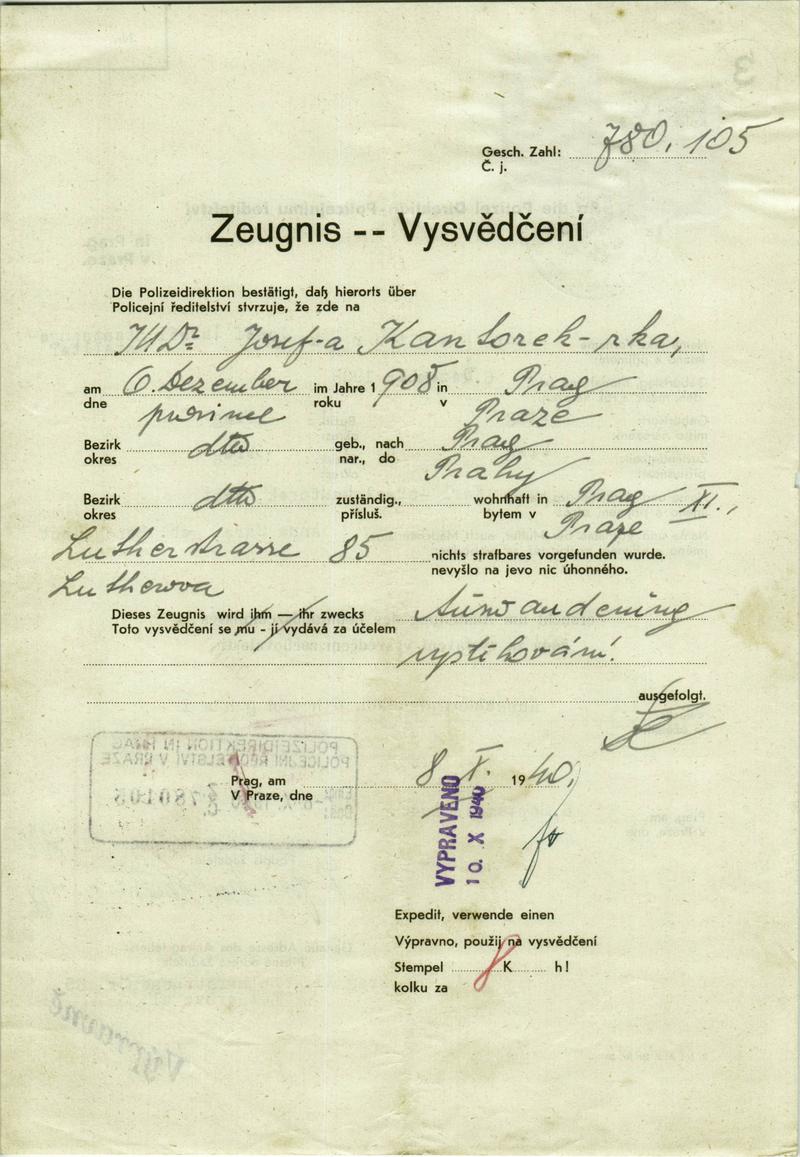 Gesch. Zahl: 780.105
Č. j.
Zeugnis -- Vysvědčení
Die Polizeidirektion bestätigt, daß hierorts über
Policejní ředitelství stvrzuje, že zde na
Josef-a Kantorek-rka,
am 6. Dezember im Jahre 1908 in Prag
dne prosince roku v Praze
Bezirk dtto geb., nach Prag
okres nar., do Prahy
Bezirk dtto zuständig., wohnhaft in Prag XI.,
okres přísluš. bytem v Praze
Lutherstrasse 85 nichts strafbares vorgefunden wurde.
Lutherova nevyšlo na jevo nic úhonného.
Dieses Zeugnis wird ihm — ihr zwecks Auswanderung
Toto vysvědčení se mu - jí vydává za účelem
vystěhování.
ausgefolgt.
POLIZEIDIREKTION IN PRAG
POLICEJNÍ ŘEDITELSTVÍ V PRAZE
780105
Prag, am 8 X. 1940
V Praze, dne
VYPRAVENO
10. X 1940
Expedit, verwende einen
Výpravno, použij na vysvědčení
Stempel 8 K h!
kolku za
Výpravně